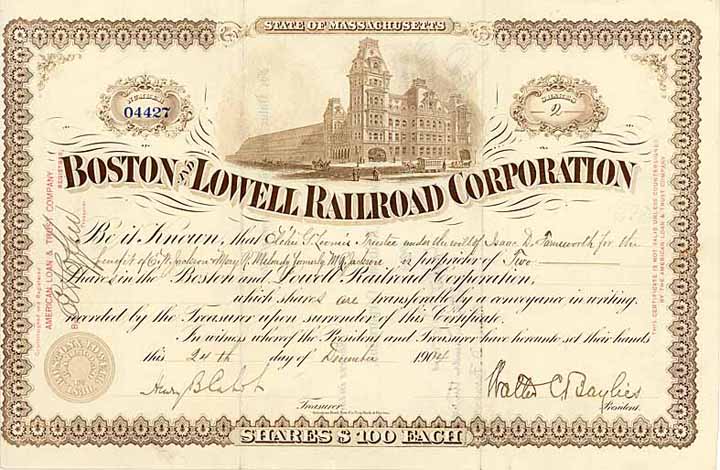 STATE OF MASSACHUSETTS
NUMBER
04427
SHARES
2
BOSTON AND LOWELL RAILROAD CORPORATION
Be it Known, that John F. Loomis Trustee under the will of Isaac D. Farnsworth for the
benefit of C. Jackson & Mary formerly Jackson is proprietor of Two
Shares in the Boston and Lowell Railroad Corporation,
which shares are transferable by a conveyance in writing,
recorded by the Treasurer upon surrender of this Certificate.
In witness whereof the President and Treasurer have hereunto set their hands
this 24th day of December 1904
Henry B. Cabot
Walter C. Baylies
Treasurer.
President.
SHARES $100 EACH
Countersigned and Registered
AMERICAN LOAN & TRUST COMPANY,
REGISTRAR
THIS CERTIFICATE IS NOT VALID UNLESS COUNTERSIGNED
BY THE AMERICAN LOAN & TRUST COMPANY.